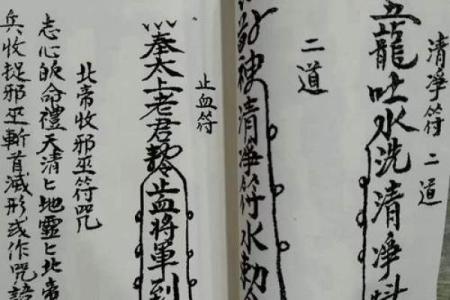 清净符 二道
五龍吐水洗清净
二道
使清净符水勅令
止血符
奉太上老君敕止血將軍到
北帝收邪巫符咒
志心皈命禮天清匕地靈匕北帝
兵收捉邪巫斬首滅形或作咒